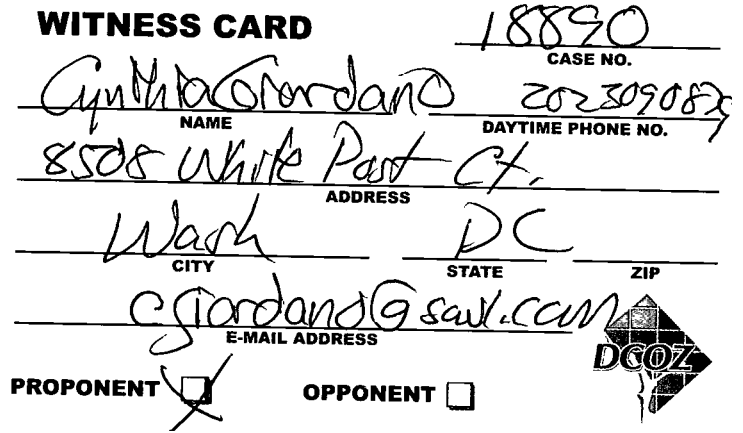 WITNESS CARD
18890
CASE NO.
Cynthia Giordano 202309087
NAME DAYTIME PHONE NO.
8508 White Post Ct.
ADDRESS
Wash DC
CITY STATE ZIP
cgiordano@saul.com
E-MAIL ADDRESS
DCOZ
PROPONENT OPPONENT